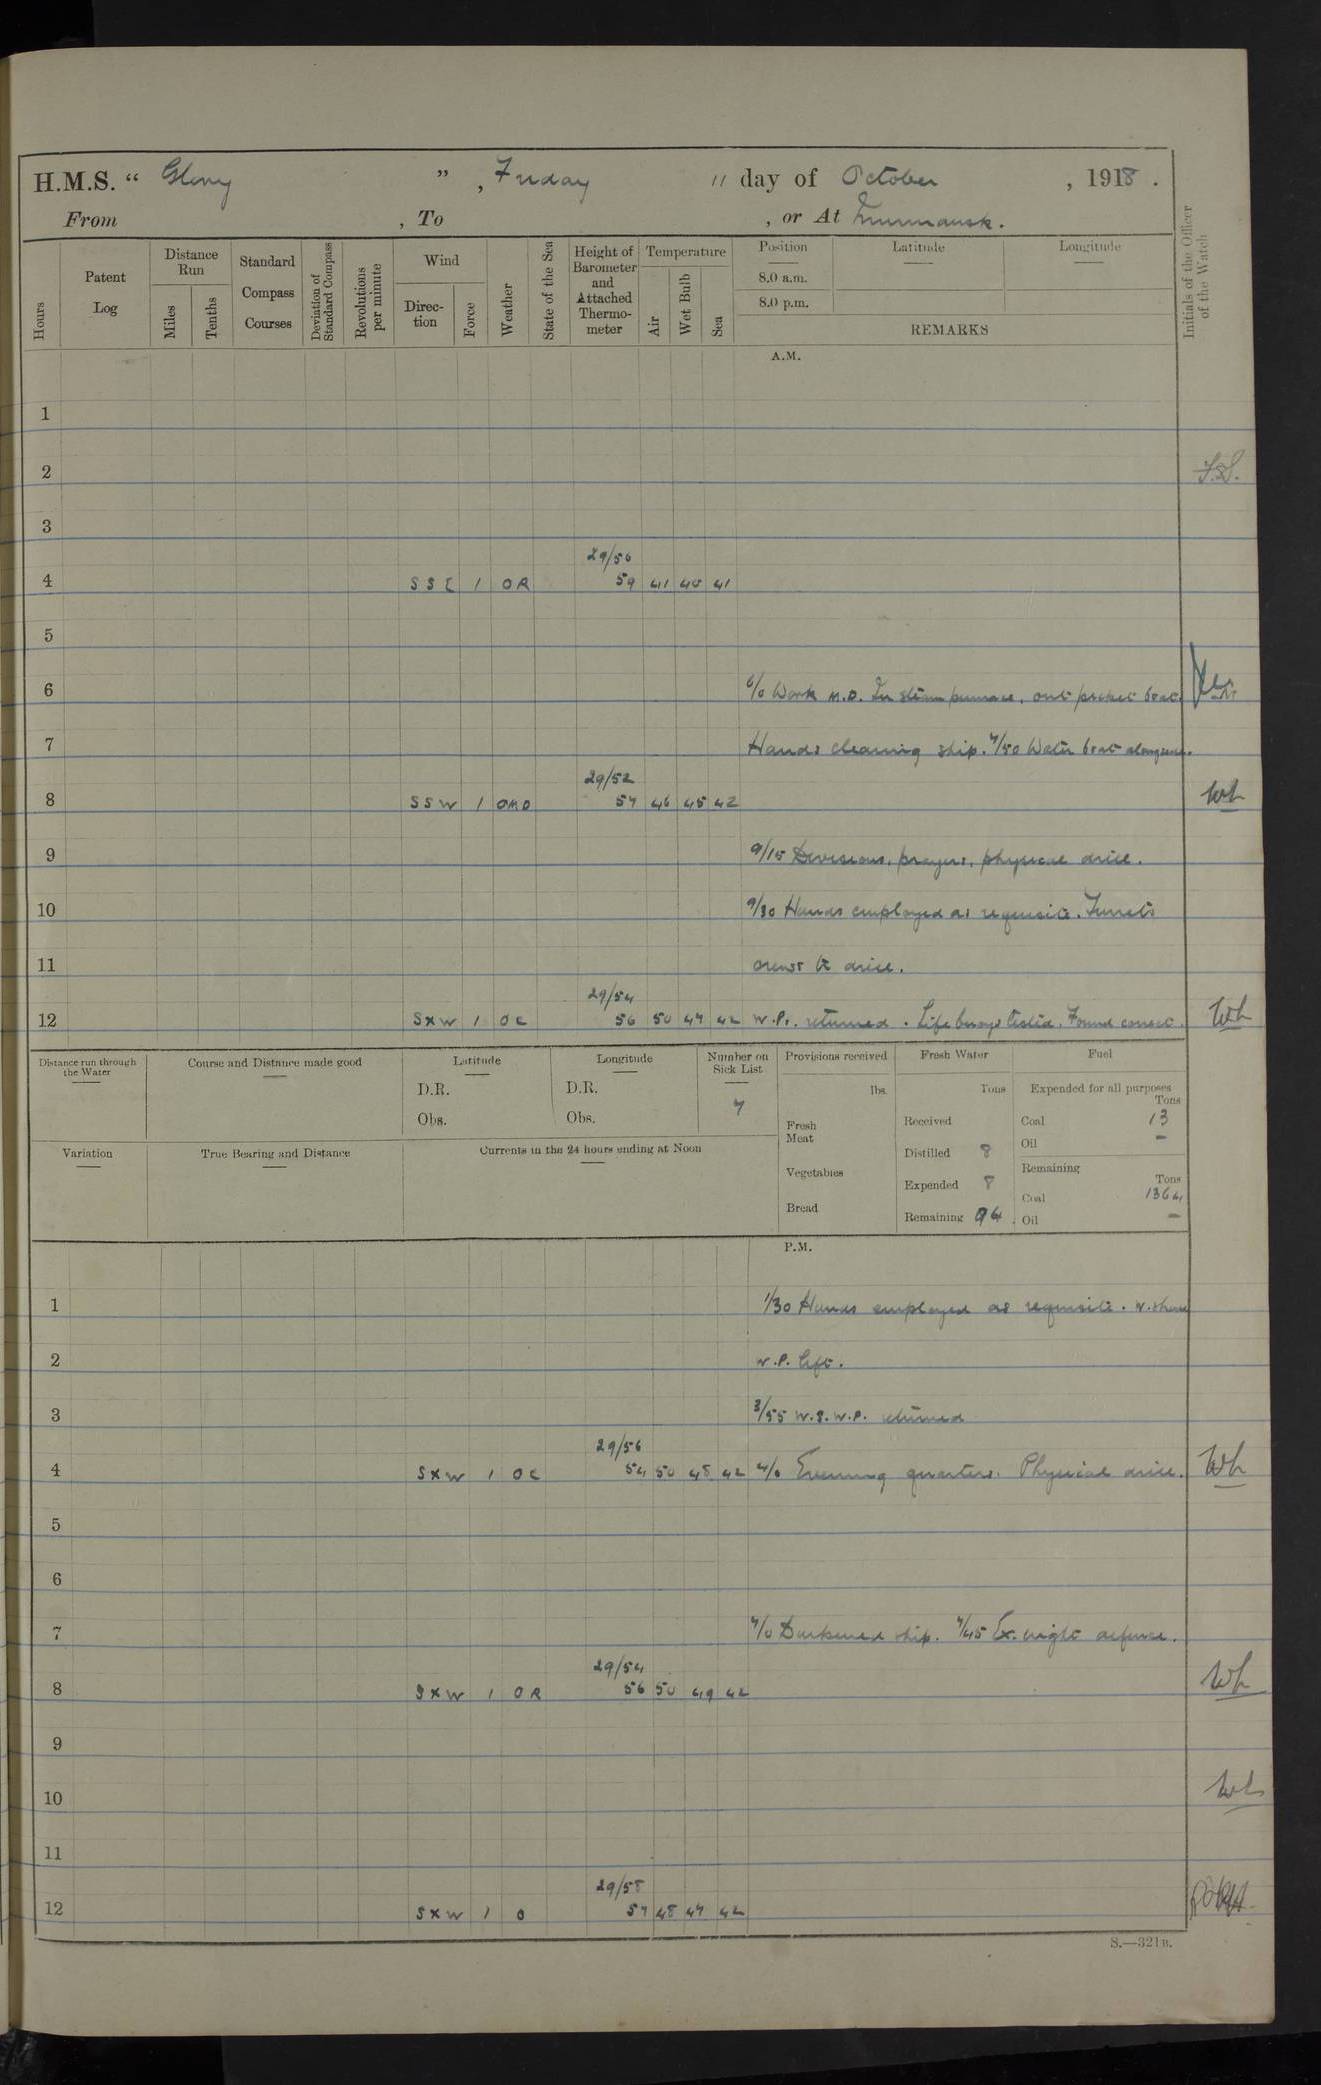 H.M.S. “ Glory ” , Friday 11 day of October , 1918 .
From , To , or At Murmansk.
Hours
Patent Log
Distance Run
Miles
Tenths
Standard Compass Courses
Deviation of Standard Compass
Revolutions per minute
Wind
Direction
Force
Weather
State of the Sea
Height of Barometer and Attached Thermometer
Temperature
Air
Wet Bulb
Sea
Position
8.0 a.m.
8.0 p.m.
Latitude
Longitude
REMARKS
Initials of the Officer of the Watch
A.M.
1
2
3
29/56
4 SSE 1 OR 59 41 40 41
5
6 6/0 Work M.D. In steam pinnace, out picket boat.
7 Hands cleaning ship. 7/50 Water boat alongside.
29/52
8 SSW 1 OMD 57 46 45 42
9 9/15 Divisions, prayers, physical drill.
10 9/30 Hands employed as requisite. Turrets
11 crews to drill.
29/54
12 SXW 1 OC 56 50 47 42 W.P. returned. Life buoys tested. Found correct.
Distance run through the Water
Course and Distance made good
Latitude
D.R.
Obs.
Longitude
D.R.
Obs.
Number on Sick List
7
Provisions received
lbs.
Fresh Meat
Vegetables
Bread
Fresh Water
Tons
Received
Distilled 8
Expended 8
Remaining 94
Fuel
Expended for all purposes
Tons
Coal 13
Oil –
Remaining
Tons
Coal 1364
Oil –
Variation
True Bearing and Distance
Currents in the 24 hours ending at Noon
P.M.
1 1/30 Hands employed as requisite.
2 W.P. left.
3 3/55 W.S.W.P. returned
29/56
4 SXW 1 OC 54 50 48 42 4/0 Evening quarters. Physical drill.
5
6
7 7/0 Darkened ship. 7/45 Ex. night defence.
29/54
8 SXW 1 OR 56 50 49 42
9
10
11
29/58
12 SXW 1 O 57 48 47 42
S.—321B.